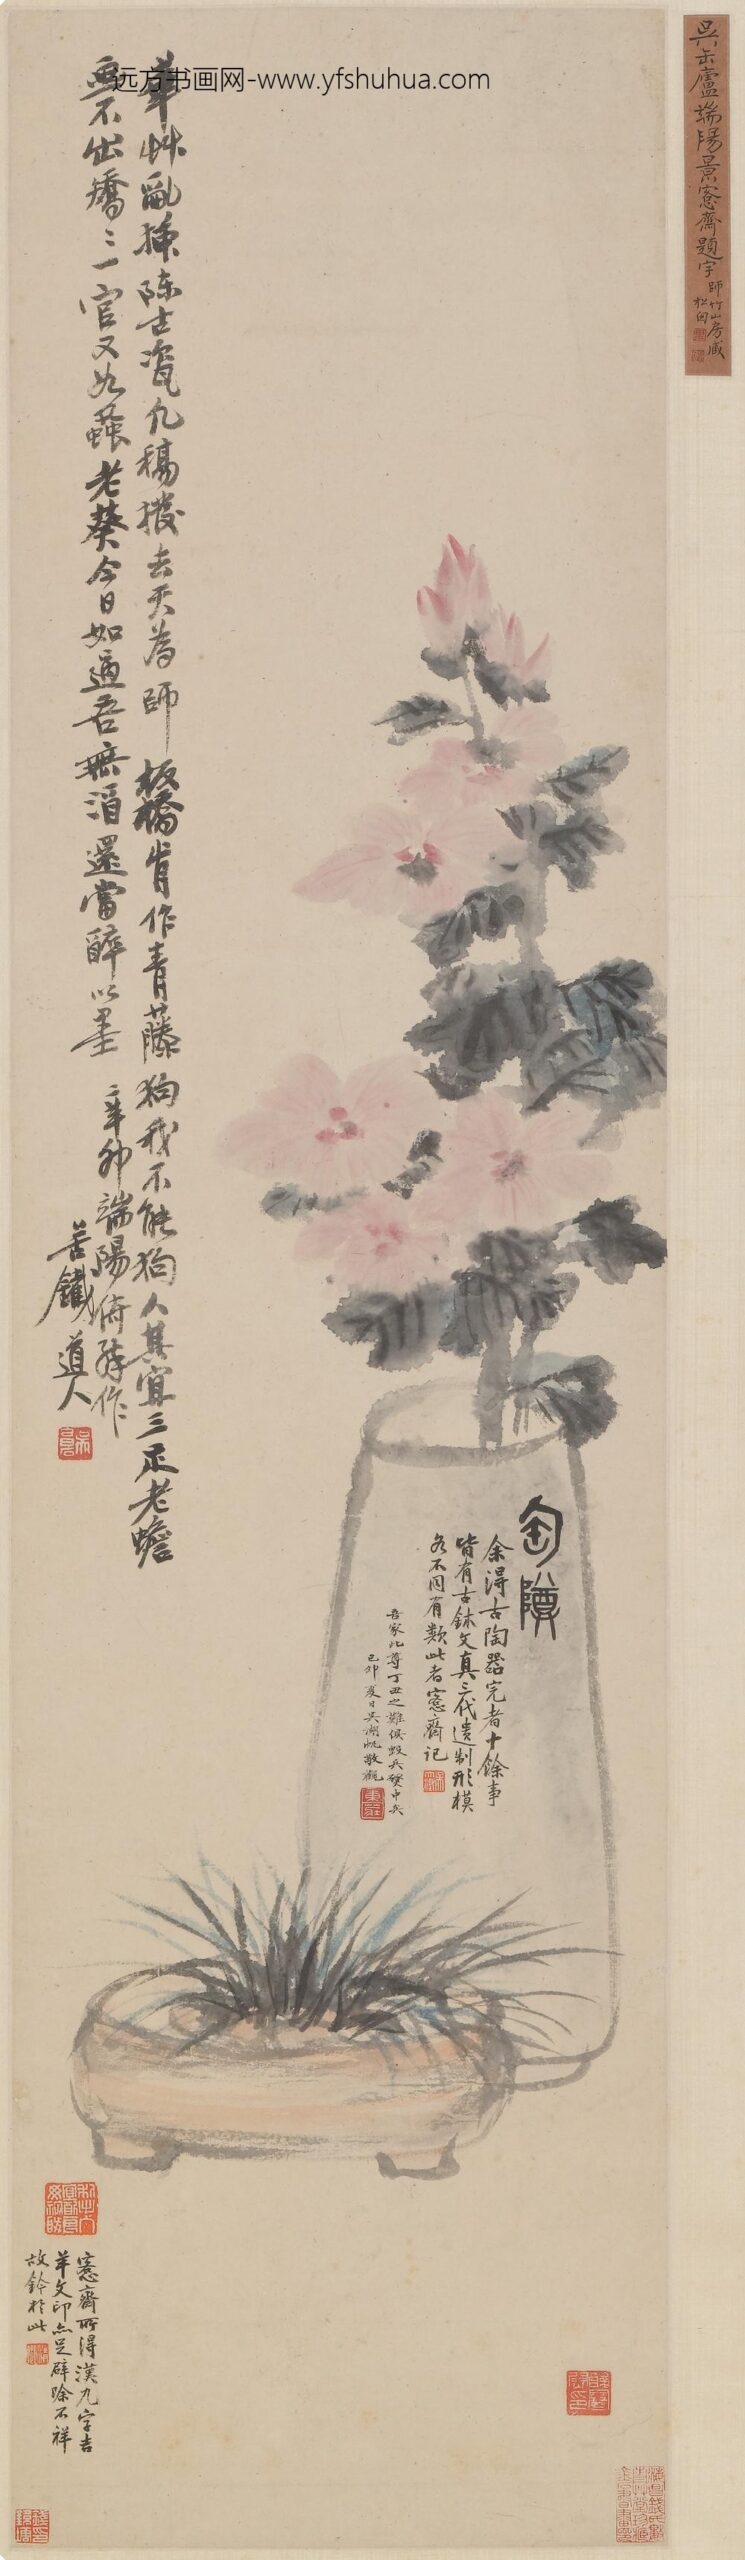 远方书画网-www.yfshuhua.com
吳缶廬端陽景愙齋題字
師竹山房藏
華艸亂插陈古瓷九稿撥去天為師板橋肯作青藤狗我不能狗人其宜三足老蟾
不出一官又如老葵今日如適吾無酒還當醉以墨
辛卯端陽倚醉作
苦鐵道人
匋尊
余得古陶器完者十餘事
皆有古鉥文真三代遺制形模
各不同有類此者愙齋記
吾家此尊丁丑之難侯毀兵燹中矣
己卯夏日吳湖帆敬觀
愙齋所得漢九字吉
羊文印亦足辟除不祥
故鈐於此